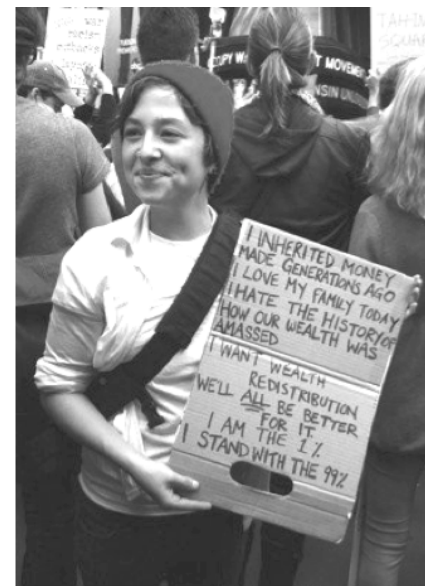 TAHIR
SQUAR
OCCUPY WA
T MOVEMEN
NSIN UNION
I INHERITED MONEY
MADE GENERATIONS AGO
I LOVE MY FAMILY TODAY
I HATE THE HISTORY OF
HOW OUR WEALTH WAS
AMASSED
I WANT WEALTH
REDISTRIBUTION
WE'LL ALL BE BETTER
FOR IT.
I AM THE 1%
I STAND WITH THE 99%